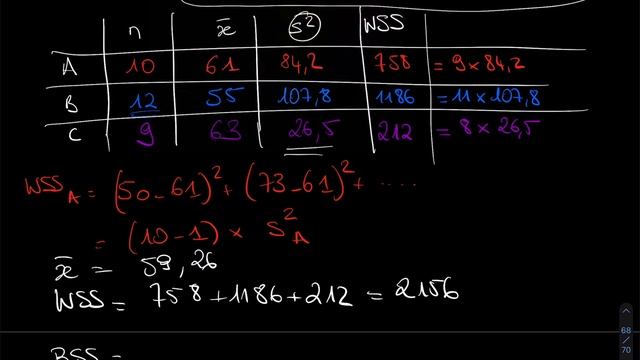 n x̄ s² WSS
A 10 61 84,2 758 = 9 × 84,2
B 12 55 107,8 1186 = 11 × 107,8
C 9 63 26,5 212 = 8 × 26,5
WSS_A = (50-61)² + (73-61)² + ....
= (10-1) × S²_A
x̄ = 59,26
WSS = 758+1186+212 = 2156
BSS =
68
/
70